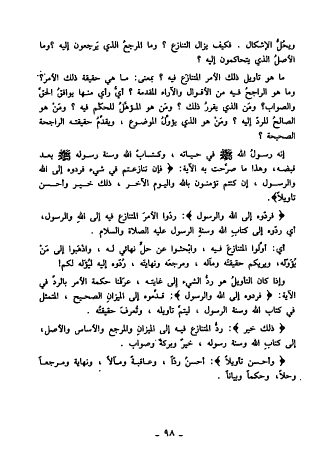 ويحلّ الإشكال . فكيف يزال التنازع ؟ وما المرجعُ الذي يَرجعون إليه ؟وما
الأصلُ الذي يتحاكمون إليه ؟
ما هو تأويل ذلك الأمر المتنازع فيه ؟ بمعنى: ما هي حقيقة ذلك الأمر؟
وما هو الراجح فيه من الأقوال والآراء المقدمة ؟ أيٌّ رأي منها يوافق الحقّ
والصواب؟ ومن الذي يقررُ ذلك ؟ ومن هو المؤهّلُ للحكم فيه ؟ ومَنْ هو
الصالحُ للردّ إليه ؟ ومَنْ هو الذي يؤوّلُ الموضوع ، ويقدّمُ حقيقته الراجحة
الصحيحة ؟
إنه رسولُ الله ﷺ في حياته ، وكتابُ الله وسنة رسوله ﷺ بعد
قبضه، وهذا ما صرّحت به الآية: ﴿ فإن تنازعتم في شيء فردوه إلى الله
والرسول ، إن كنتم تؤمنون بالله واليوم الآخر ، ذلك خير وأحسن
تأويلاً﴾.
﴿ فردّوه إلى الله والرسول ﴾: ردّوا الأمرَ المتنازع فيه إلى اللهِ والرسول،
أي ردّوه إلى كتاب الله وسنةِ الرسول عليه الصلاة والسلام .
أي: أوّلوا المتنازعَ فيه ، وابْحثوا عن حلٍّ نهائي له ، واذهبوا إلى مَنْ
يُؤوّله، ويريكم حقيقتَه ومآلَه ، ومرجعَه ونهايتَه ، ردّوه إليه ليُؤوّله لكم!
وإذا كان التأويلُ هو ردُّ الشيء إلى غايته ، عرفْنا حكمة الأمر بالردّ في
الآية: ﴿ فردوه إلى الله والرسول ﴾: قدّموه إلى الميزانِ الصحيح ، المتمثل
في كتاب الله وسنة الرسول ، ليتمَّ تأويله ، وتُعرفَ حقيقتُه .
﴿ ذلك خير ﴾: ردُّ المتنازع فيه إلى الميزانِ والمرجع والأساس والأصل،
إلى كتابِ الله وسنة رسوله ، خيرٌ وبركةٌ وصواب .
﴿ وأحسن تأويلاً ﴾: أحسنُ ردّاً ، وعاقبةً ومآلاً ، ونهاية ومرجعاً
وحلاً، وحكماً وبياناً .
- ٩٨ -